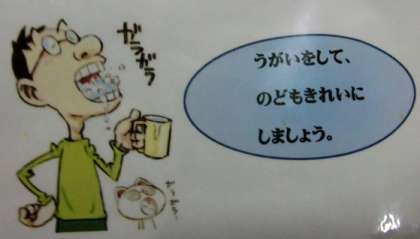 ガラガラ
うがいをして、
のどもきれいに
しましょう。